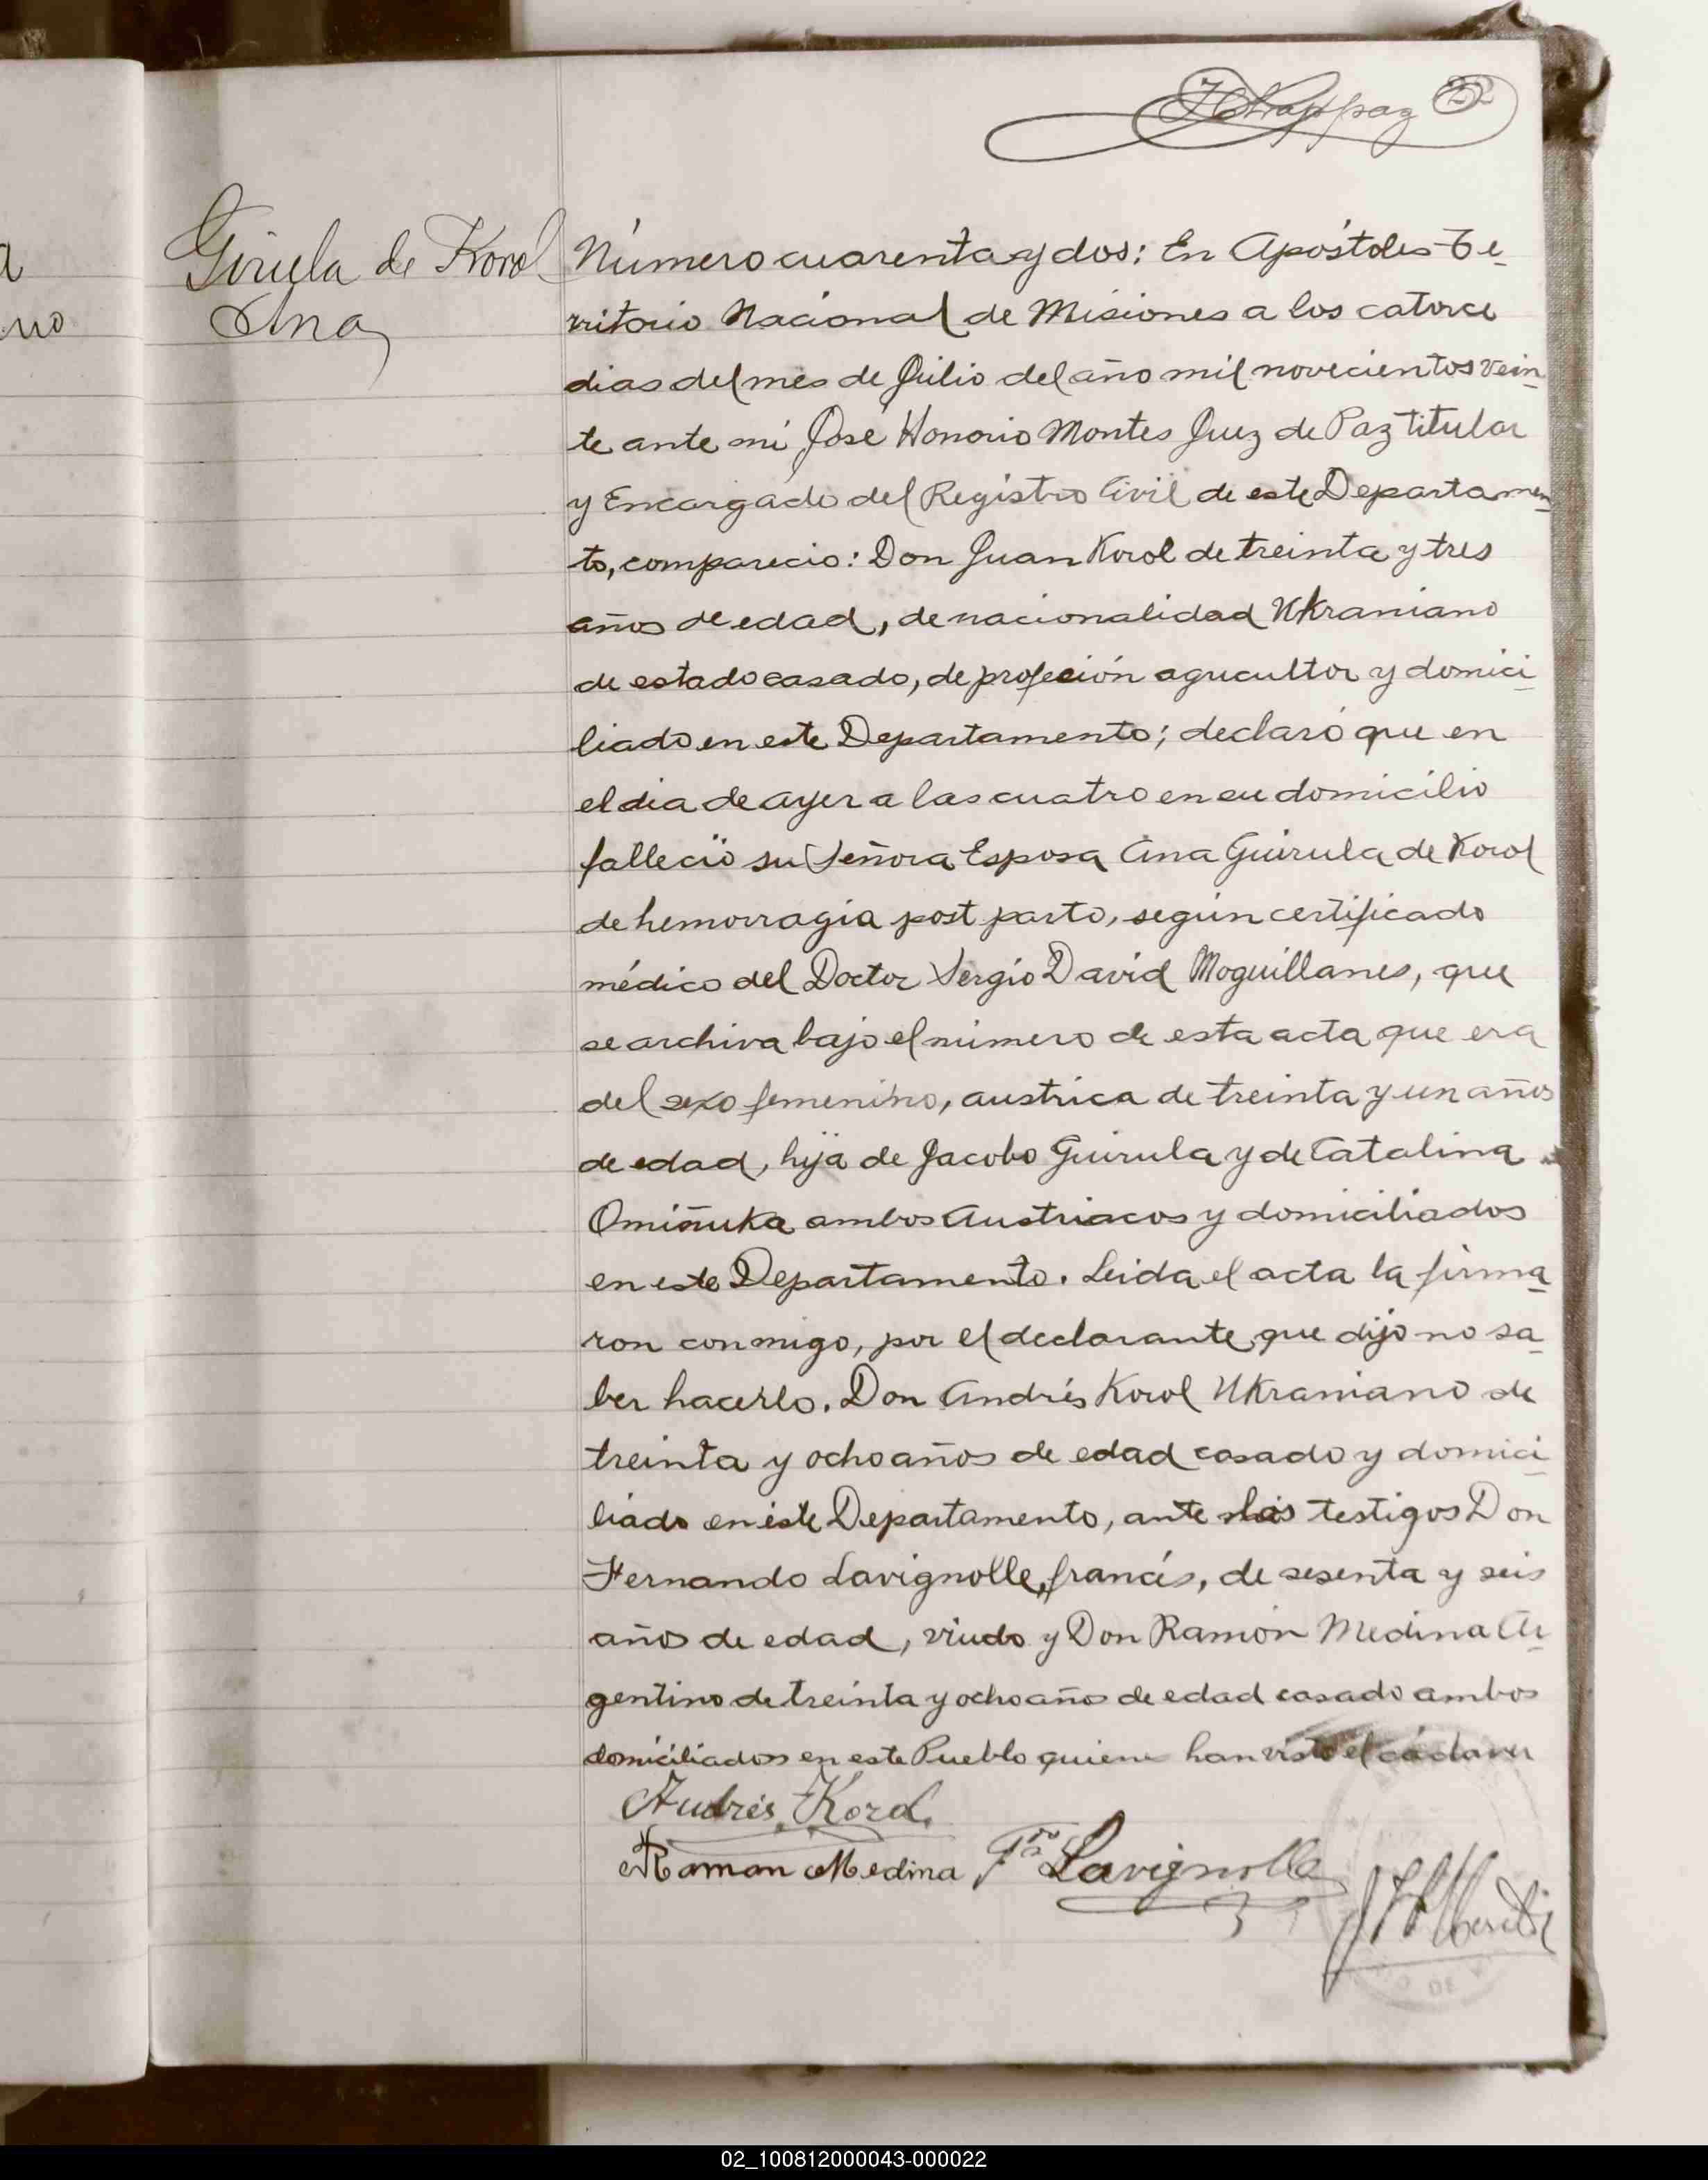 22
a
no
Giruela de Korol
Ana
Número cuarenta y dos: En Apóstoles Te-
rritorio Nacional de Misiones a los catorce
dias del mes de Julio del año mil novecientos vein-
te ante mi José Honorio Montes Juez de Paz titular
y Encargado del Registro Civil de este Departamen-
to, comparecio: Don Juan Korol de treinta y tres
años de edad, de nacionalidad Ukraniano
de estado casado, de profeción agricultor y domici-
liado en este Departamento; declaró que en
el dia de ayer a las cuatro en su domicilio
falleció su Señora Esposa Ana Guirula de Korol
de hemorragia post parto, según certificado
médico del Doctor Sergio David Moguillanes, que
se archiva bajo el número de esta acta que era
del sexo femenino, austrica de treinta y un años
de edad, hija de Jacobo Guirula y de Catalina
Omiñuka ambos Austriacos y domiciliados
en este Departamento. Leida el acta la firma-
ron conmigo, por el declarante que dijo no sa-
ber hacerlo. Don Andrés Korol Ukraniano de
treinta y ocho años de edad casado y domici-
liado en este Departamento, ante los testigos Don
Fernando Lavignolle, francés, de sesenta y seis
años de edad, viudo y Don Ramón Medina Ar-
gentino de treinta y ocho años de edad casado ambos
domiciliados en este Pueblo quiene han visto el cadaver
Andrés Korol
Ramon Medina Fdo Lavignolle
DE
02_100812000043-000022